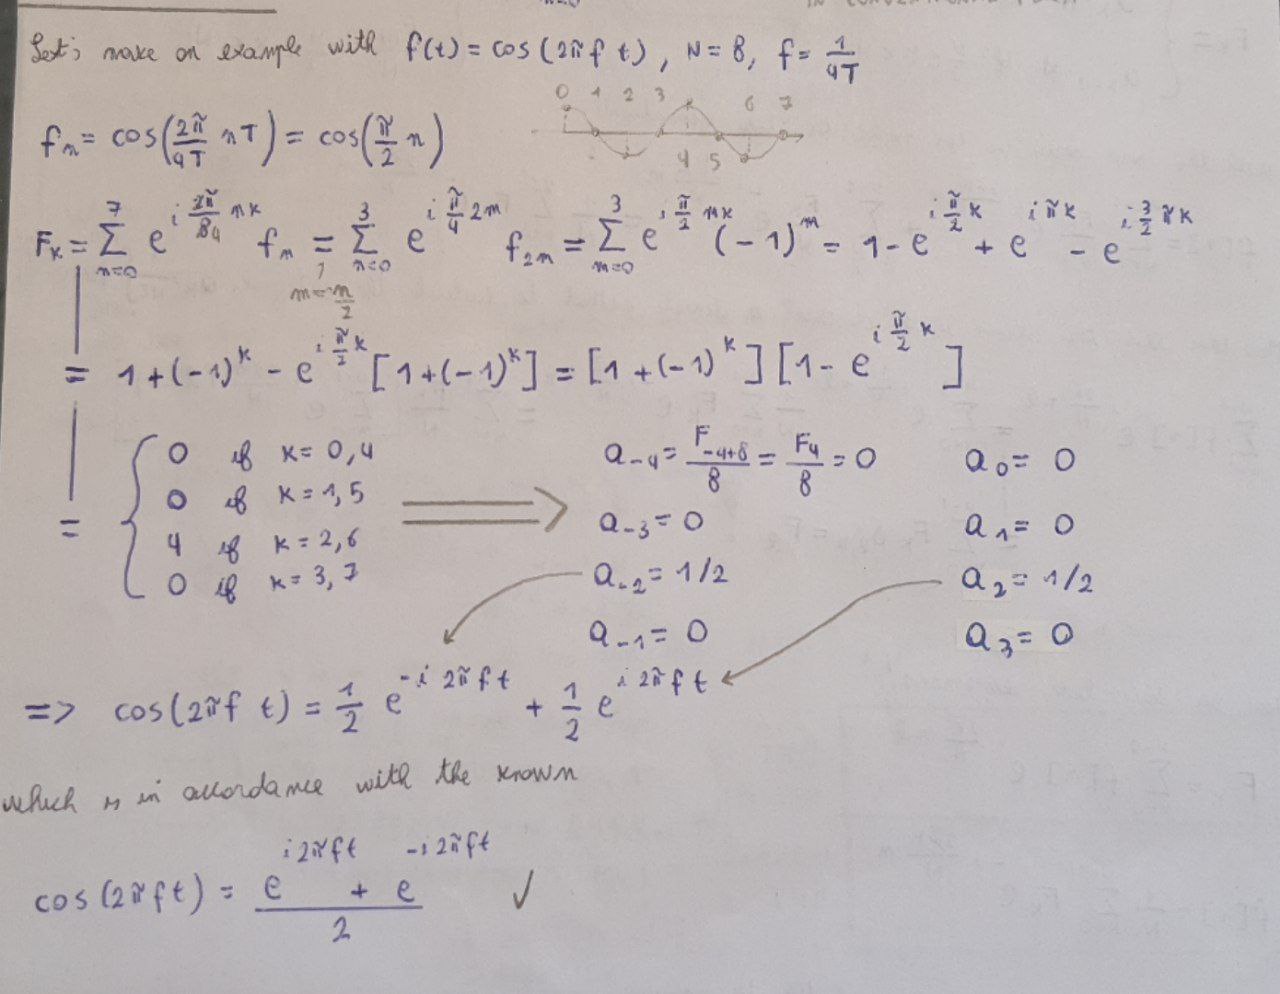 Let's make an example with f(t) = cos(2πf t), N = 8, f = 1/4T
0 1 2 3 4 5 6 7
f_n = cos(2π/4T nT) = cos(π/2 n)
F_k = Σ_{n=0}^{7} e^{i 2π/8 4 nk} f_n = Σ_{n=0}^{3} e^{i π/4 2m} f_{2m} = Σ_{m=0}^{3} e^{i π/2 mk} (-1)^m = 1 - e^{i π/2 k} + e^{i π k} - e^{i 3/2 π k}
m = n/2
= 1 + (-1)^k - e^{i π/2 k} [1 + (-1)^k] = [1 + (-1)^k] [1 - e^{i π/2 k}]
= { 0 if k = 0, 4
0 if k = 1, 5
4 if k = 2, 6
0 if k = 3, 7
=> a_{-4} = F_{-4+8}/8 = F_4/8 = 0
a_{-3} = 0
a_{-2} = 1/2
a_{-1} = 0
a_0 = 0
a_1 = 0
a_2 = 1/2
a_3 = 0
=> cos(2πf t) = 1/2 e^{-i 2πf t} + 1/2 e^{i 2πf t}
which is in accordance with the known
cos(2πft) = (e^{i2πft} + e^{-i2πft})/2 ✓